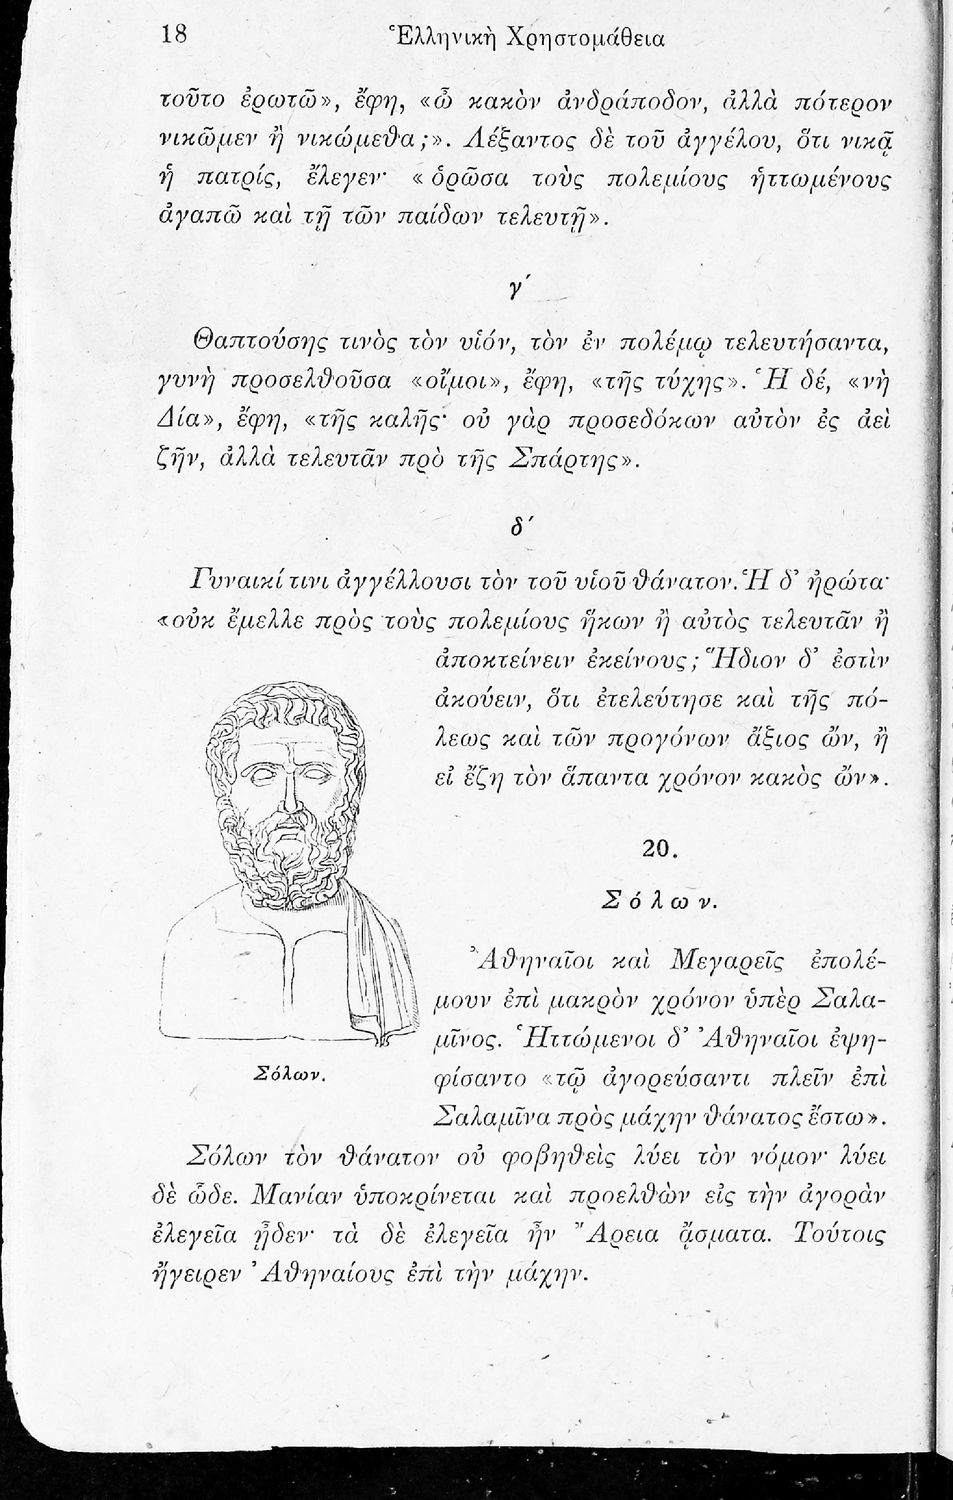 18
Ἑλληνικὴ Χρηστομάθεια
τοῦτο ἐρωτῶ», ἔφη, «ὦ κακὸν ἀνδράποδον, ἀλλὰ πότερον
νικῶμεν ἢ νικώμεθα;». Λέξαντος δὲ τοῦ ἀγγέλου, ὅτι νικᾷ
ἡ πατρίς, ἔλεγεν· «ὁρῶσα τοὺς πολεμίους ἡττωμένους
ἀγαπῶ καὶ τῇ τῶν παίδων τελευτῇ».
γ΄
Θαπτούσης τινὸς τὸν υἱόν, τὸν ἐν πολέμῳ τελευτήσαντα,
γυνὴ προσελθοῦσα «οἴμοι», ἔφη, «τῆς τύχης». Ἡ δέ, «νὴ
Δία», ἔφη, «τῆς καλῆς· οὐ γὰρ προσεδόκων αὐτὸν ἐς ἀεὶ
ζῆν, ἀλλὰ τελευτᾶν πρὸ τῆς Σπάρτης».
δ΄
Γυναικί τινι ἀγγέλλουσι τὸν τοῦ υἱοῦ θάνατον. Ἡ δ’ ἠρώτα·
«οὐκ ἔμελλε πρὸς τοὺς πολεμίους ἥκων ἢ αὐτὸς τελευτᾶν ἢ
ἀποκτείνειν ἐκείνους; Ἥδιον δ’ ἐστὶν
ἀκούειν, ὅτι ἐτελεύτησε καὶ τῆς πό-
λεως καὶ τῶν προγόνων ἄξιος ὤν, ἢ
εἰ ἔζη τὸν ἅπαντα χρόνον κακὸς ὤν».
20.
Σόλων.
Ἀθηναῖοι καὶ Μεγαρεῖς ἐπολέ-
μουν ἐπὶ μακρὸν χρόνον ὑπὲρ Σαλα-
μῖνος. Ἡττώμενοι δ’ Ἀθηναῖοι ἐψη-
φίσαντο «τῷ ἀγορεύσαντι πλεῖν ἐπὶ
Σαλαμῖνα πρὸς μάχην θάνατος ἔστω».
Σόλων.
Σόλων τὸν θάνατον οὐ φοβηθεὶς λύει τὸν νόμον· λύει
δὲ ὧδε. Μανίαν ὑποκρίνεται καὶ προελθὼν εἰς τὴν ἀγορὰν
ἐλεγεῖα ᾖδεν· τὰ δὲ ἐλεγεῖα ἦν Ἄρεια ᾄσματα. Τούτοις
ἤγειρεν Ἀθηναίους ἐπὶ τὴν μάχην.